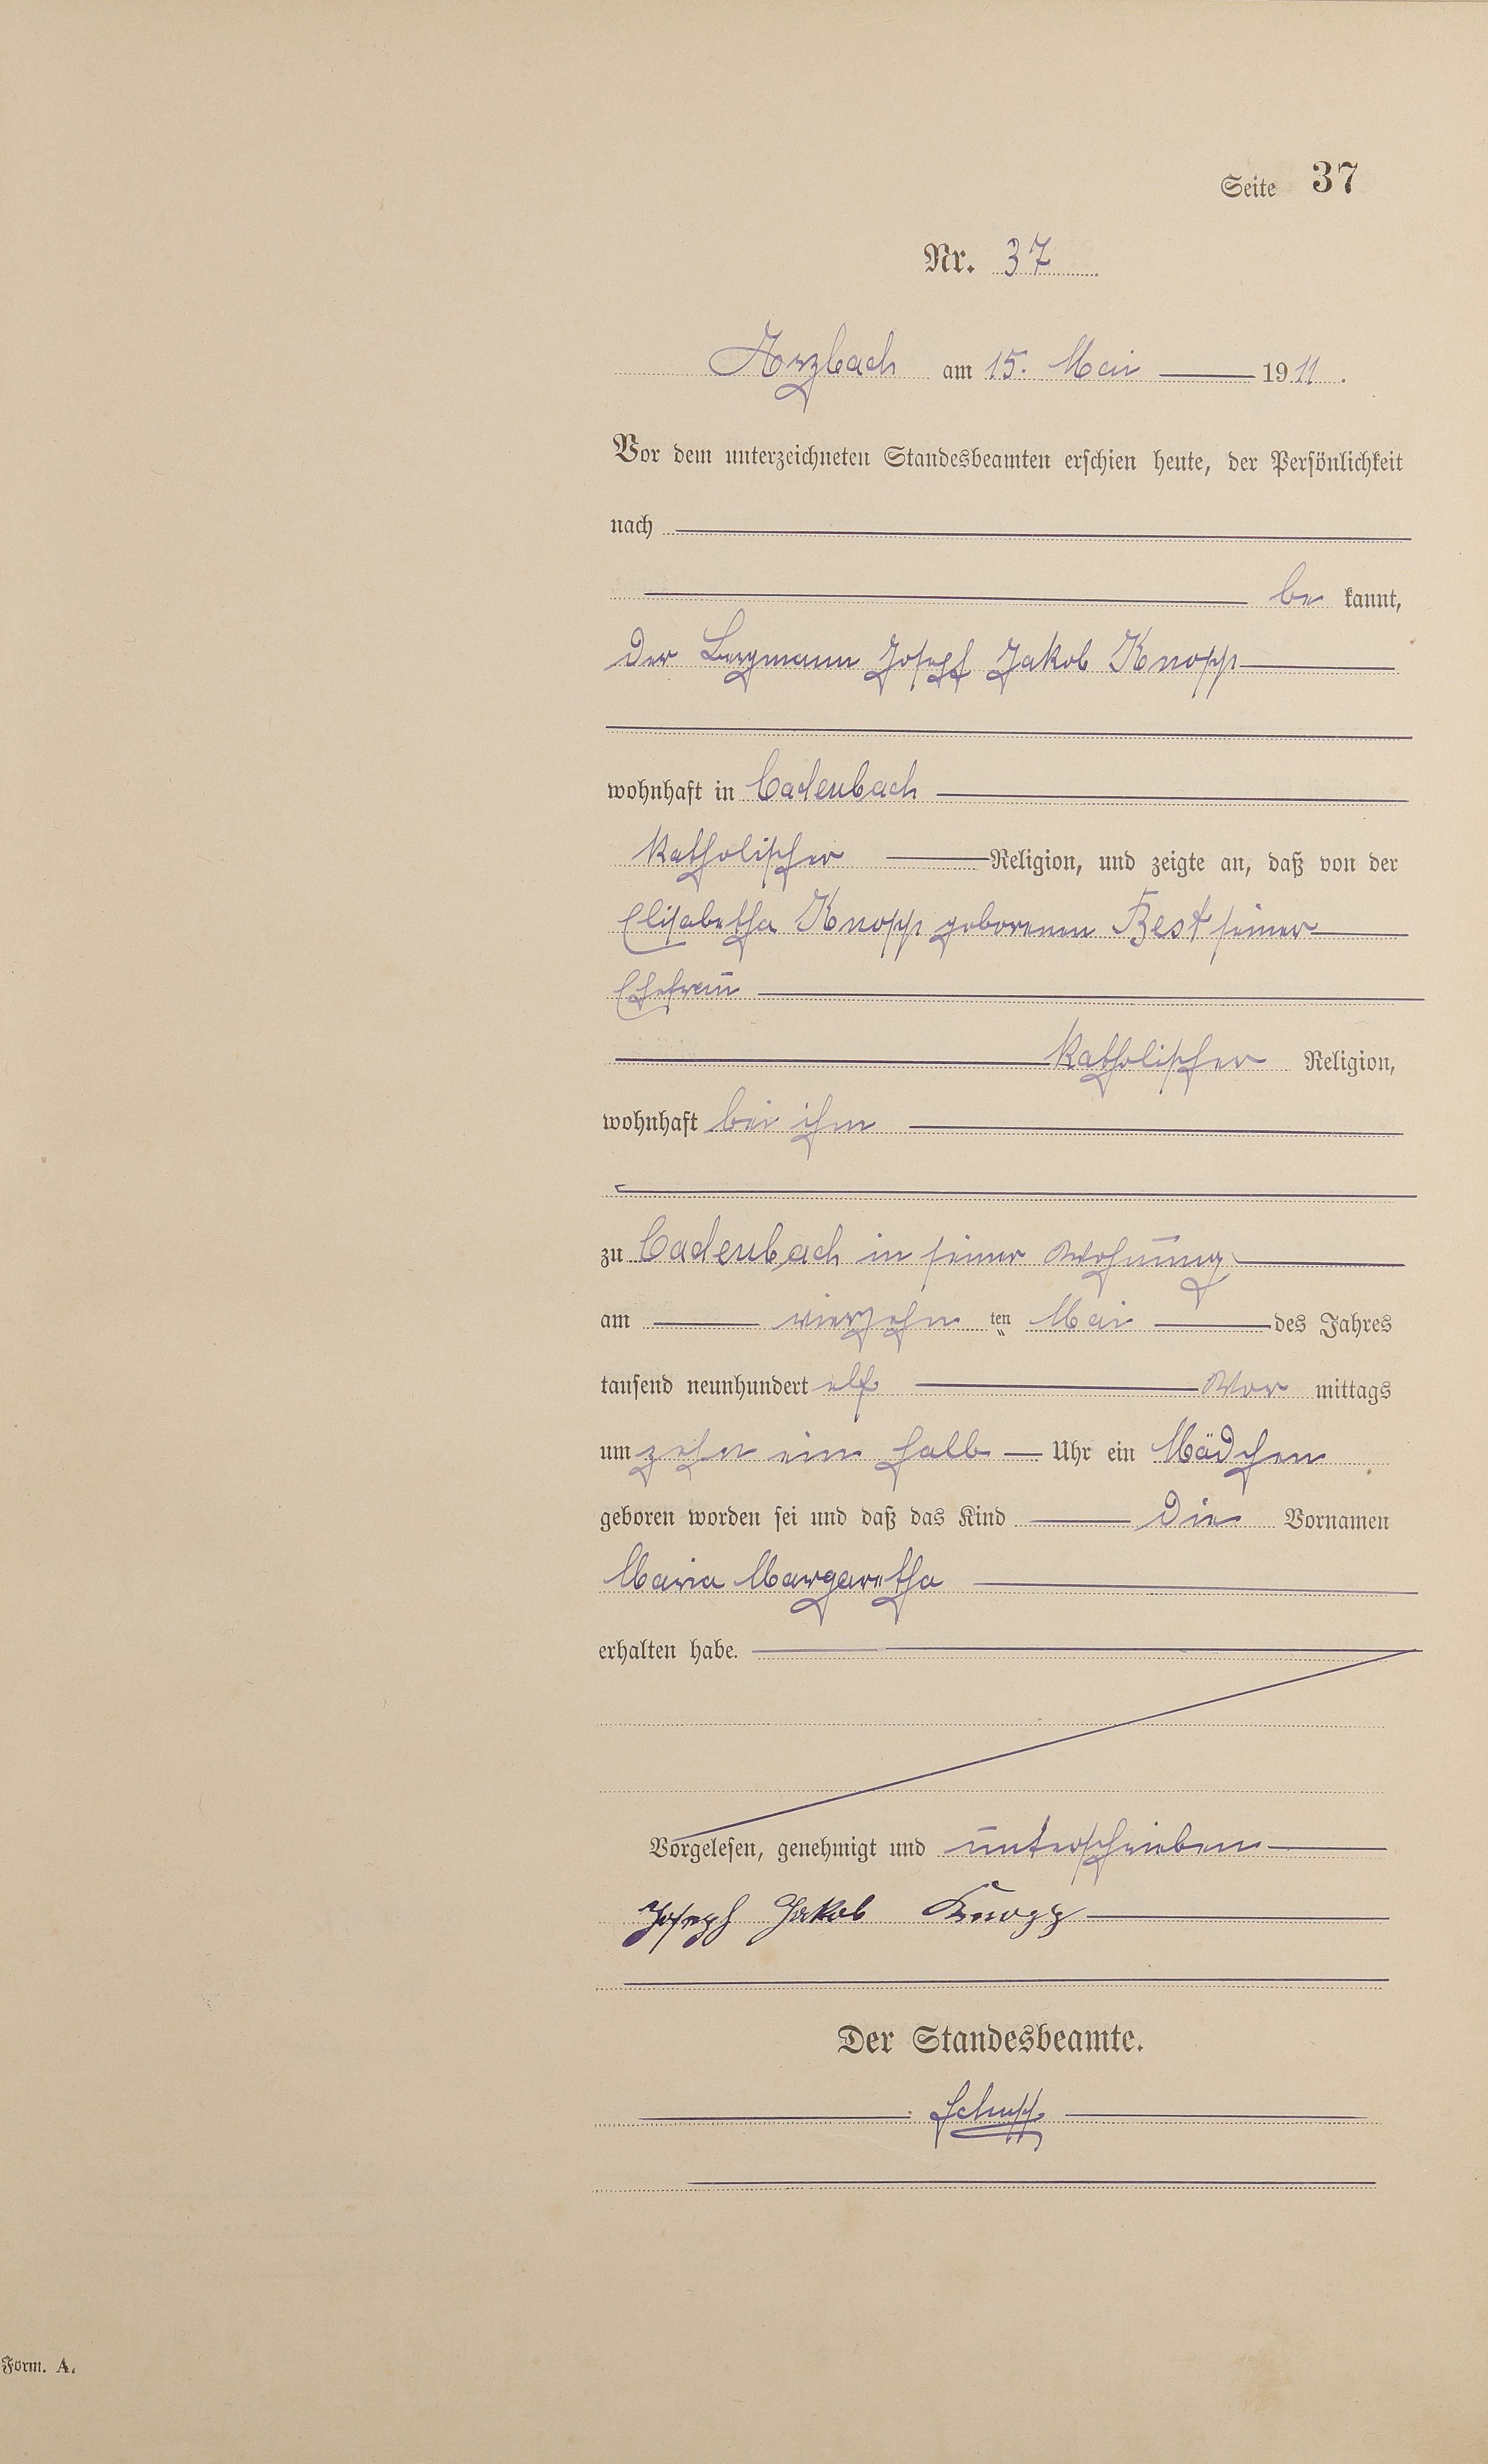 Seite 37
Nr. 37
Arzbach am 15. Mai 1911.
Vor dem unterzeichneten Standesbeamten erschien heute, der Persönlichkeit
nach
be kannt,
der Bergmann Joseph Jakob Knopp
wohnhaft in Cadenbach
katholischer Religion, und zeigte an, daß von der
Elisabetha Knopp geborenen Best seiner
Ehefrau
katholischer Religion,
wohnhaft bei ihm
zu Cadenbach in seiner Wohnung
am vierzehn ten Mai des Jahres
tausend neunhundert elf Vor mittags
um zehn ein halb Uhr ein Mädchen
geboren worden sei und daß das Kind die Vornamen
Maria Margaretha
erhalten habe.
Vorgelesen, genehmigt und unterschrieben
Joseph Jakob Knopp
Der Standesbeamte.
Schupp
Form. A.